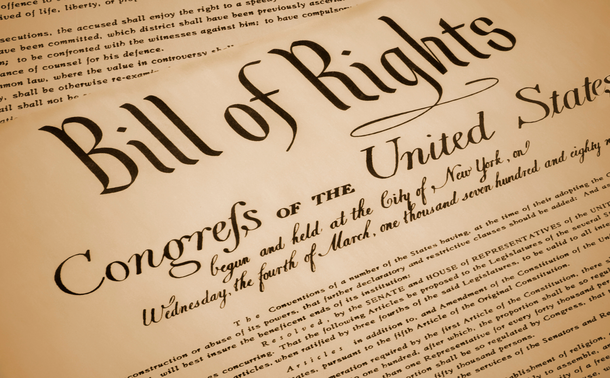 offence to
ved of life, liberty, or prope
secutions, the accused shall enjoy the right to a speedy
ave been committed, which district shall have been previously ascer
n; to be confronted with the witnesses against him; to have compulso
ance of counsel for his defence.
mmon law, where the value in controversy
shall be otherwise re-exam
ail shall not be
Bill of Rights
Congreſs OF THE United States
begun and held at the City of New York, on
Wednesday, the fourth of March, one thousand seven hundred and eighty
The Conventions of a number of the States having, at the time of their adopting the C
onstruction or abuse of its powers, that further declaratory and restrictive clauses should be added: And
will best insure the beneficent ends of its institution.
Resolved, by the SENATE and HOUSE of REPRESENTATIVES of the UNIT
concurring. That the following Articles be proposed to the Legislatures of the several
articles, when ratified by three fourths of the said Legislatures, to be valid to all inten
Articles in addition to, and Amendments of the Constitution of the Un
States, pursuant to the fifth Article of the Original Constitution.
eration required by the first Article of the Constitution, there
one hundred, after which, the proportion shall be so reg
than one Representative for every forty thousand per
by Congress, that
fifty thousand persons.
services of the Senators and
establishment of religion,